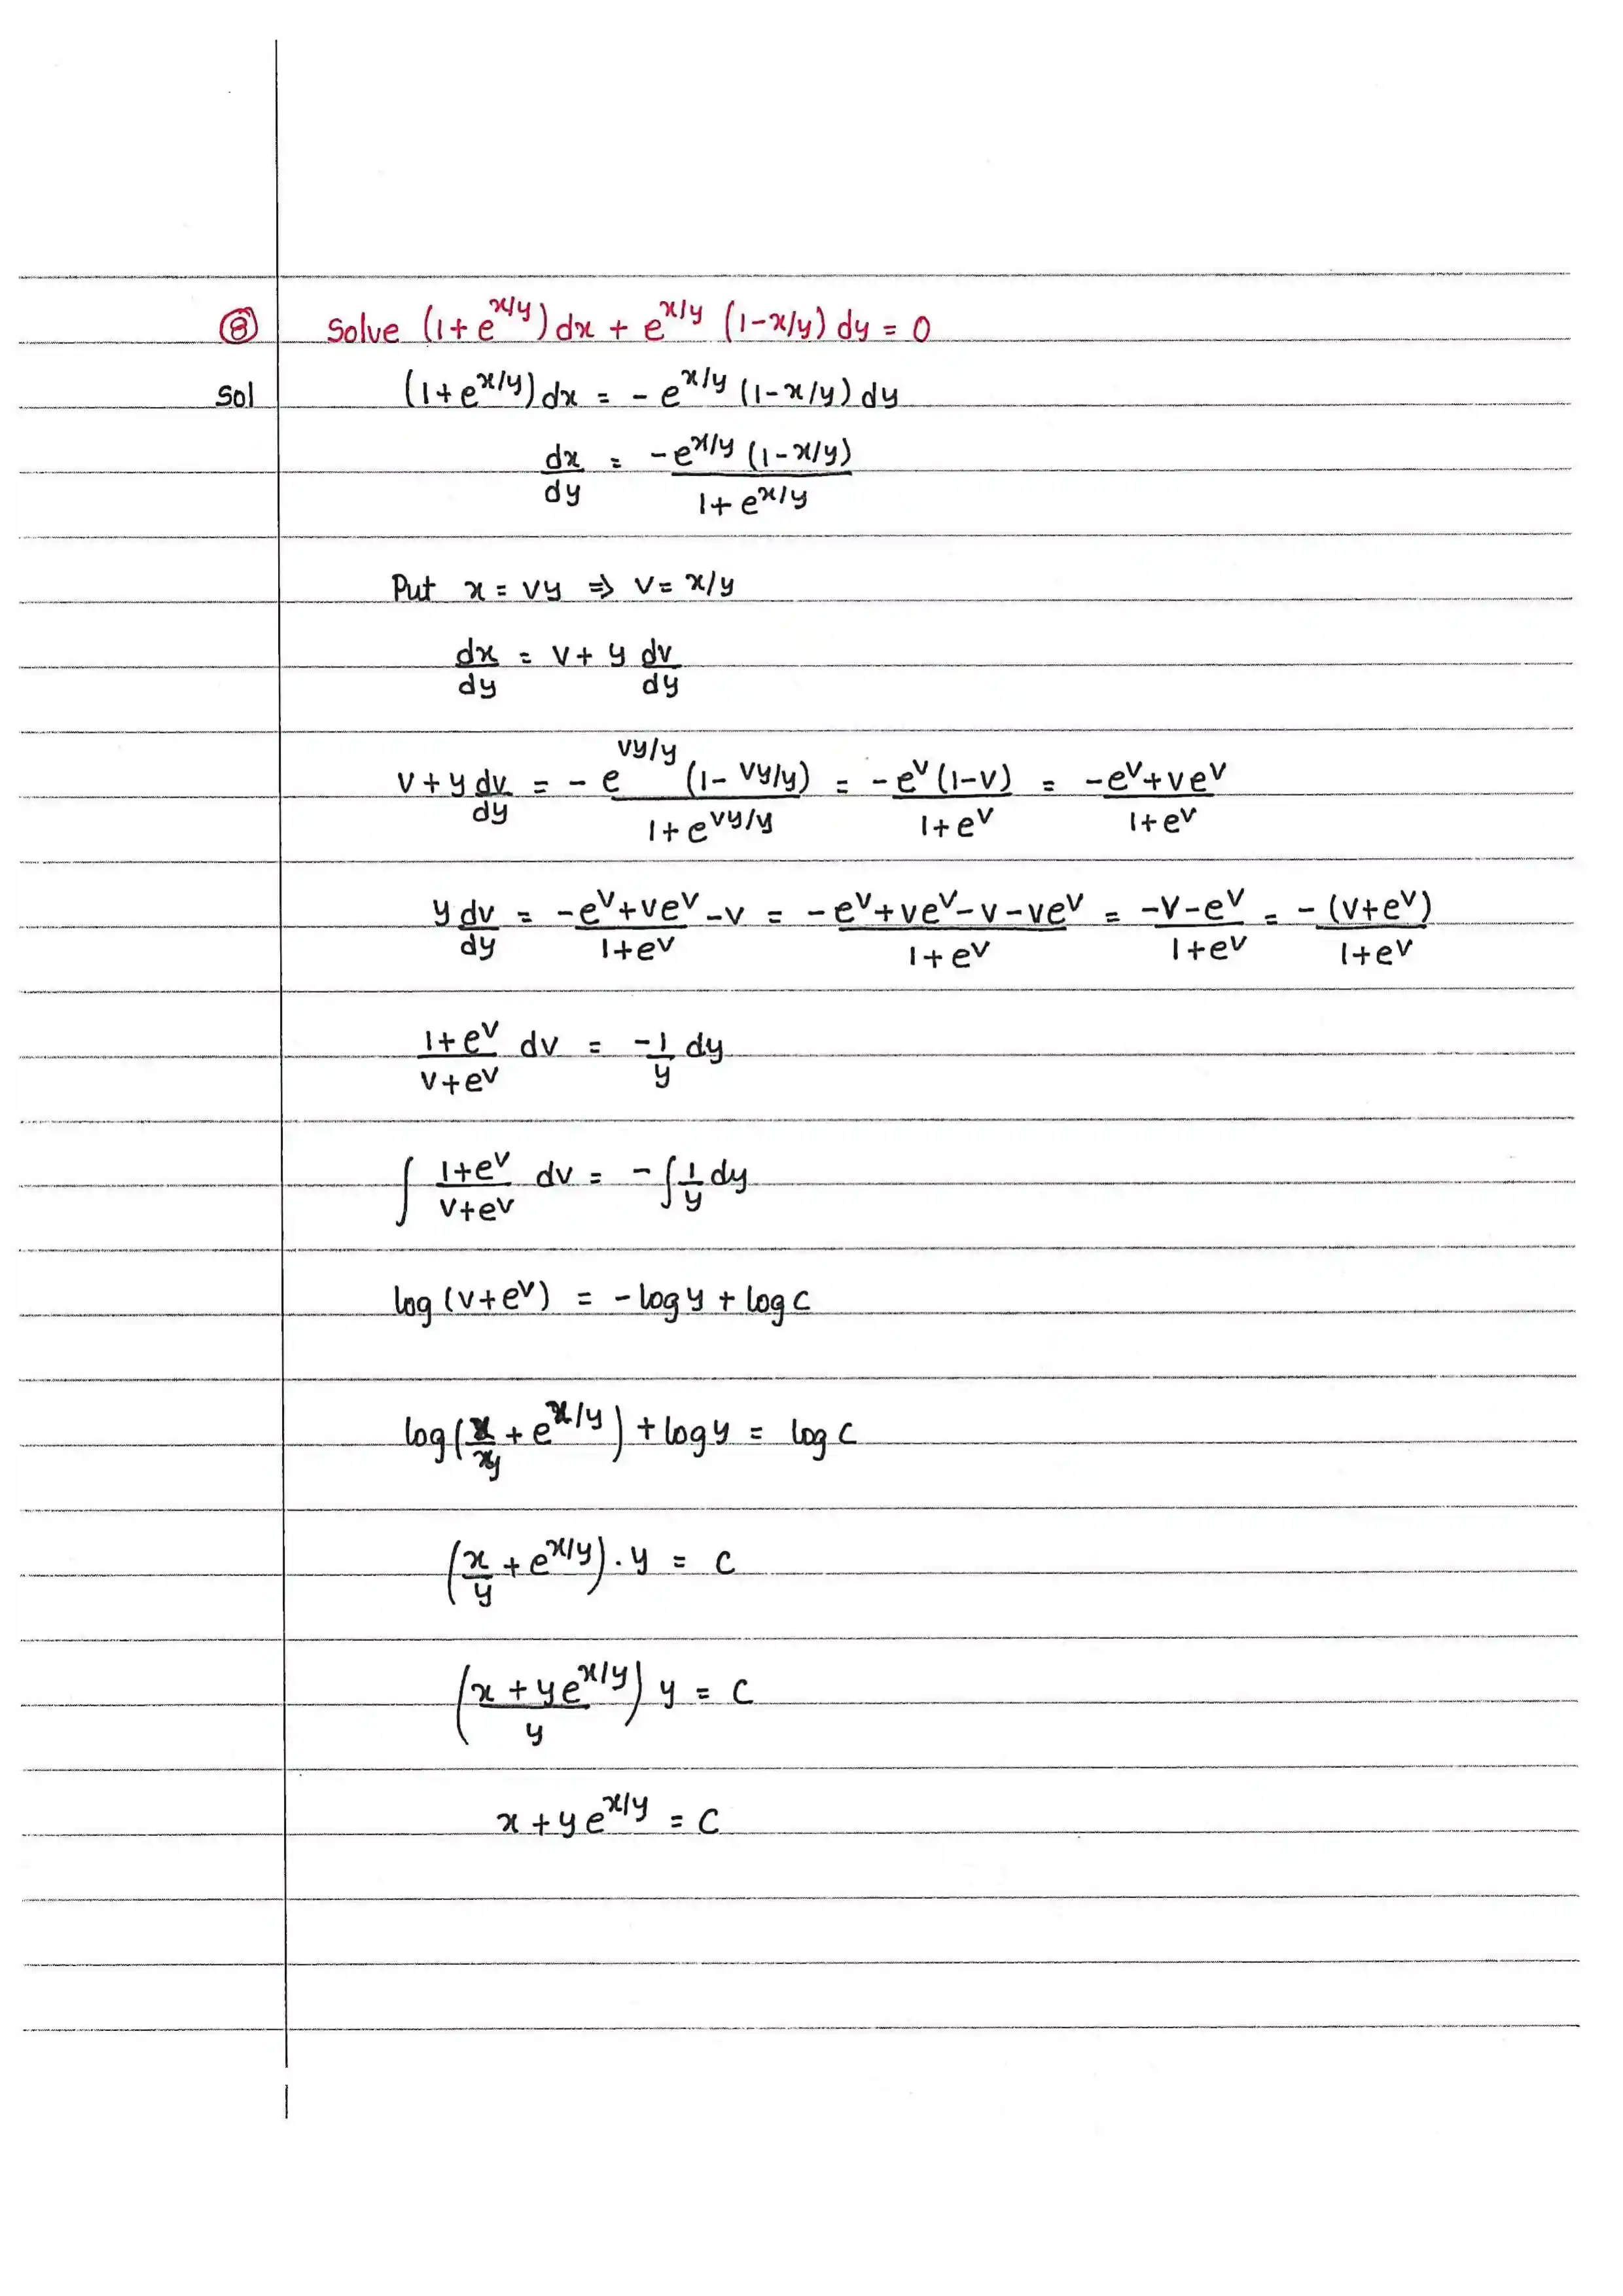 ⑧ Solve (1+e^{x/y}) dx + e^{x/y} (1-x/y) dy = 0
Sol (1+e^{x/y}) dx = - e^{x/y} (1-x/y) dy
dx/dy = -e^{x/y} (1-x/y) / 1+e^{x/y}
Put x = vy ⇒ v = x/y
dx/dy = v + y dv/dy
v + y dv/dy = - e^{vy/y} (1- vy/y) / 1+e^{vy/y} = -e^v (1-v) / 1+e^v = -e^v+ve^v / 1+e^v
y dv/dy = -e^v+ve^v / 1+e^v - v = -e^v+ve^v-v-ve^v / 1+e^v = -v-e^v / 1+e^v = - (v+e^v) / 1+e^v
1+e^v / v+e^v dv = -1/y dy
∫ 1+e^v / v+e^v dv = - ∫ 1/y dy
log (v+e^v) = - log y + log c
log (x/y + e^{x/y}) + log y = log c
(x/y + e^{x/y}) . y = c
(x + y e^{x/y} / y) y = c
x + y e^{x/y} = c